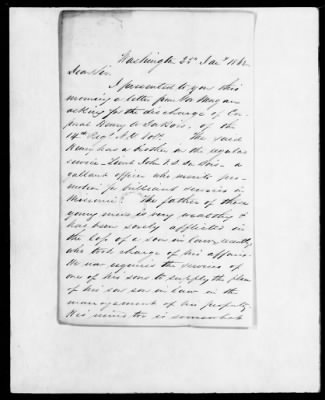 Washington 25th Jany 1862
Dear Sir.
I presented to you this
morning a letter from Gov Morgan
asking for the discharge of Cor
poral Henry A Du Bois, of the
14th Regt N.Y. Vols. The said
Henry has a brother in the regular
service - Lieut John V. D. Du Bois - a
gallant officer who merits pro-
motion for brilliant services in
Missouri. The father of these
young men is very wealthy &
has been sorely afflicted in
the loss of a son in law, recently
who took charge of his affairs.
He now requires the services of
one of his sons to supply the place
of his son in law in the
management of his property
His mind too is somewhat